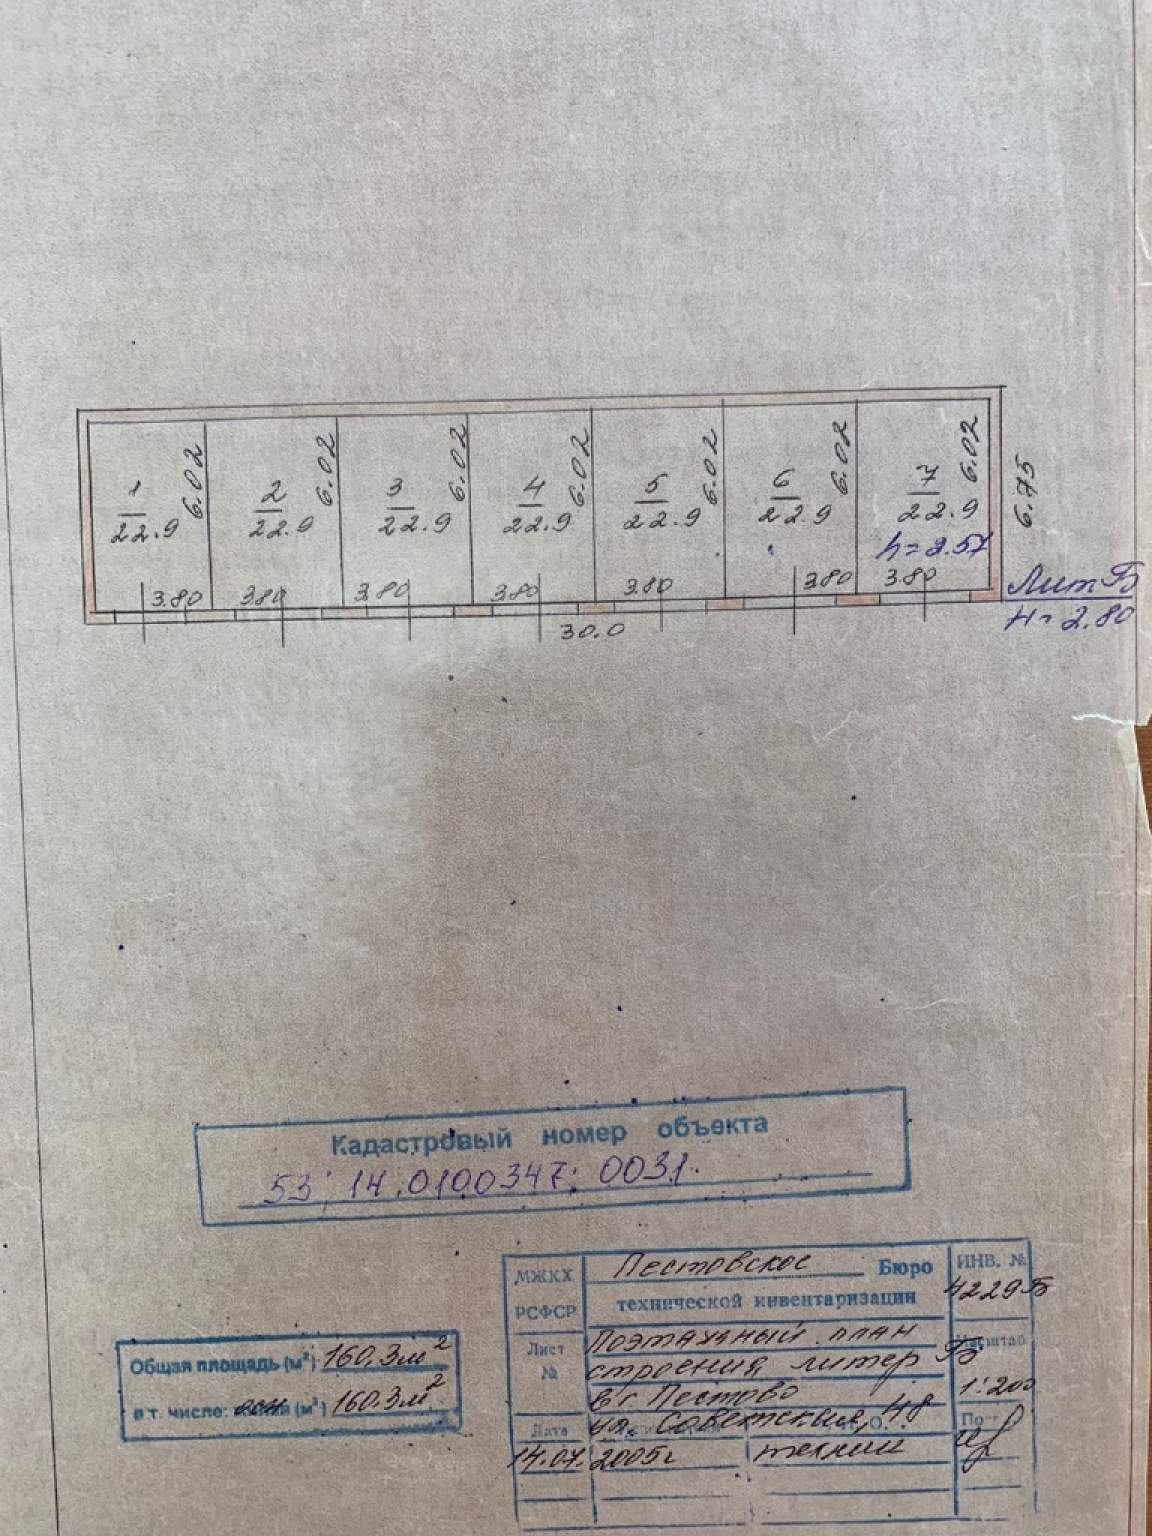 1 2 3 4 5 6 7
22.9 22.9 22.9 22.9 22.9 22.9 22.9
6.02 6.02 6.02 6.02 6.02 6.02 6.02
6.75
h=2.57
3.80 3.80 3.80 3.80 3.80 3.80 3.80
30.0
Лит Б
H=2.80
Кадастровый номер объекта
53:14:0100347:0031.
МЖКХ
РСФСР
Пестовское Бюро
технической инвентаризации
ИНВ. №
4229Б
Лист
№
Поэтажный план
строения, литер Б
в г. Пестово
ул. Советская, 48
Масштаб
1:200
Дата
14.07. 2005г техник
Общая площадь (м²) 160,3м²
в т. числе: (м²) 160.3м²